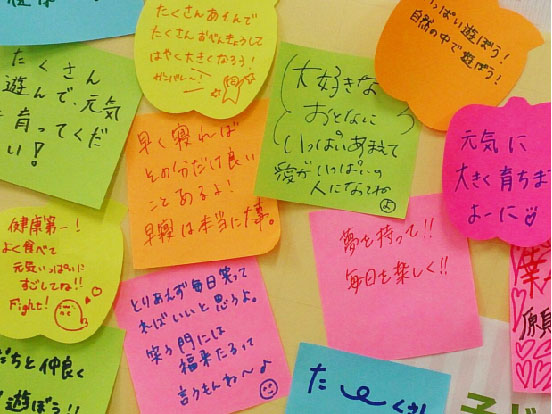 たくさん
遊んで、元気
に育ってくだ
い!
たくさんあそんで
たくさんおべんきょうして
はやく大きくなろう!
ガンバレ
いっぱい遊ぼう!
自然の中で遊ぼう!
大好きな
おとなに
いっぱいあまえて
愛がいっぱいの
人になってね
早く寝れば
その分だけ良い
ことあるよ!
早寝は本当に大事。
元気に
大きく育ちま
よーに
健康第一!
よく食べて
元気いっぱいに
すごしてね!!
Fight!
夢を持って!!
毎日を楽しく!!
とりあえず毎日笑って
ればいいと思うよ。
笑う門には
福来たるって
言うもんね〜♪
だちと仲良く
遊ぼう!
た
くさん
子ど